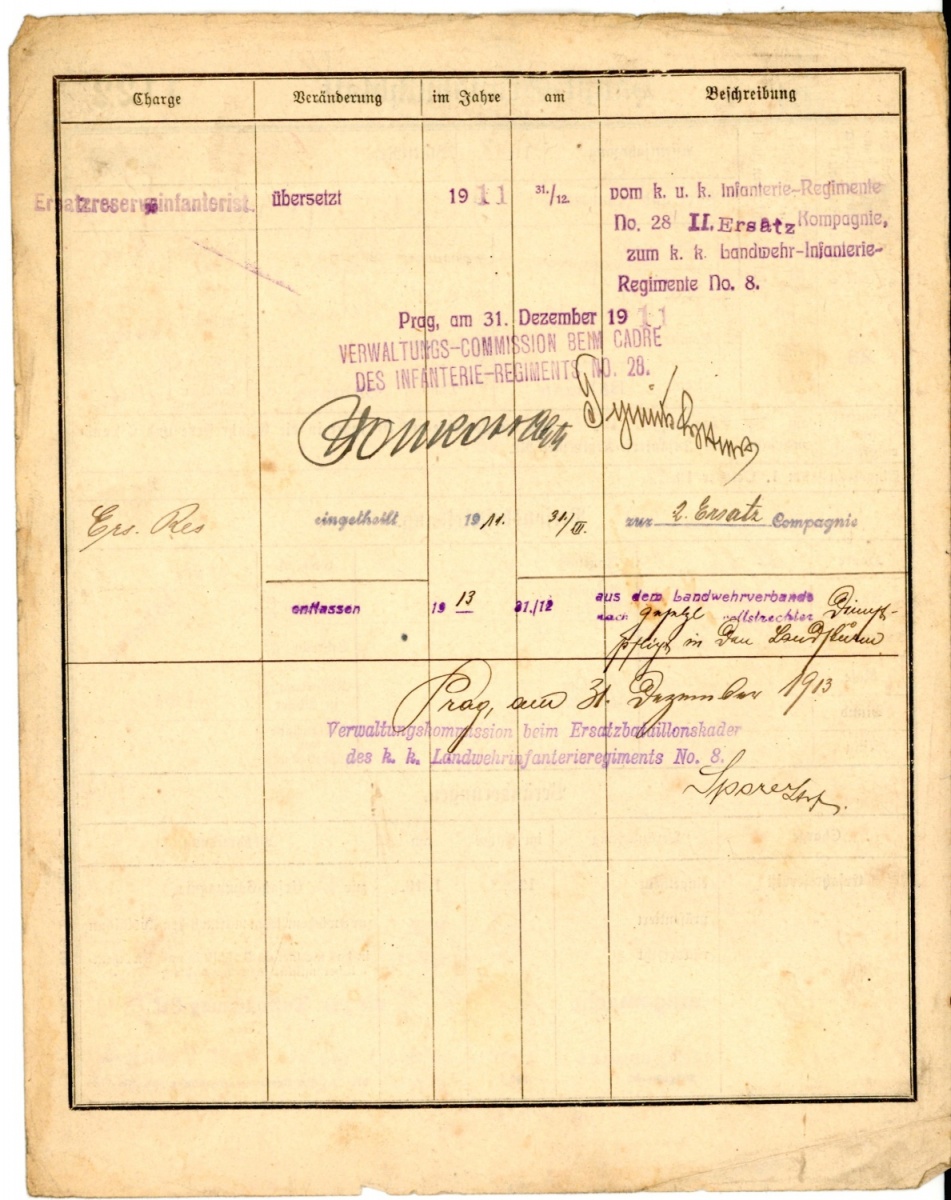 Charge Veränderung im Jahre am Beschreibung
Ersatzreserveinfanterist. übersetzt 1911 31./12. vom k. u. k. Infanterie-Regimente
No. 28 II. Ersatz Kompagnie,
zum k. k. Landwehr-Infanterie-
Regimente No. 8.
Prag, am 31. Dezember 1911
VERWALTUNGS-COMMISSION BEIM CADRE
DES INFANTERIE-REGIMENTS NO. 28.
Ers. Res eingetheilt 1911. 31./III. zur 2. Ersatz Compagnie
entlassen 1913 31./12 aus dem Landwehrverbande
nach gesetzl vollstreckter Dienst-
pflicht in den Landsturm
Prag, am 31. Dezember 1913
Verwaltungskommission beim Ersatzbataillonskader
des k. k. Landwehrinfanterieregiments No. 8.